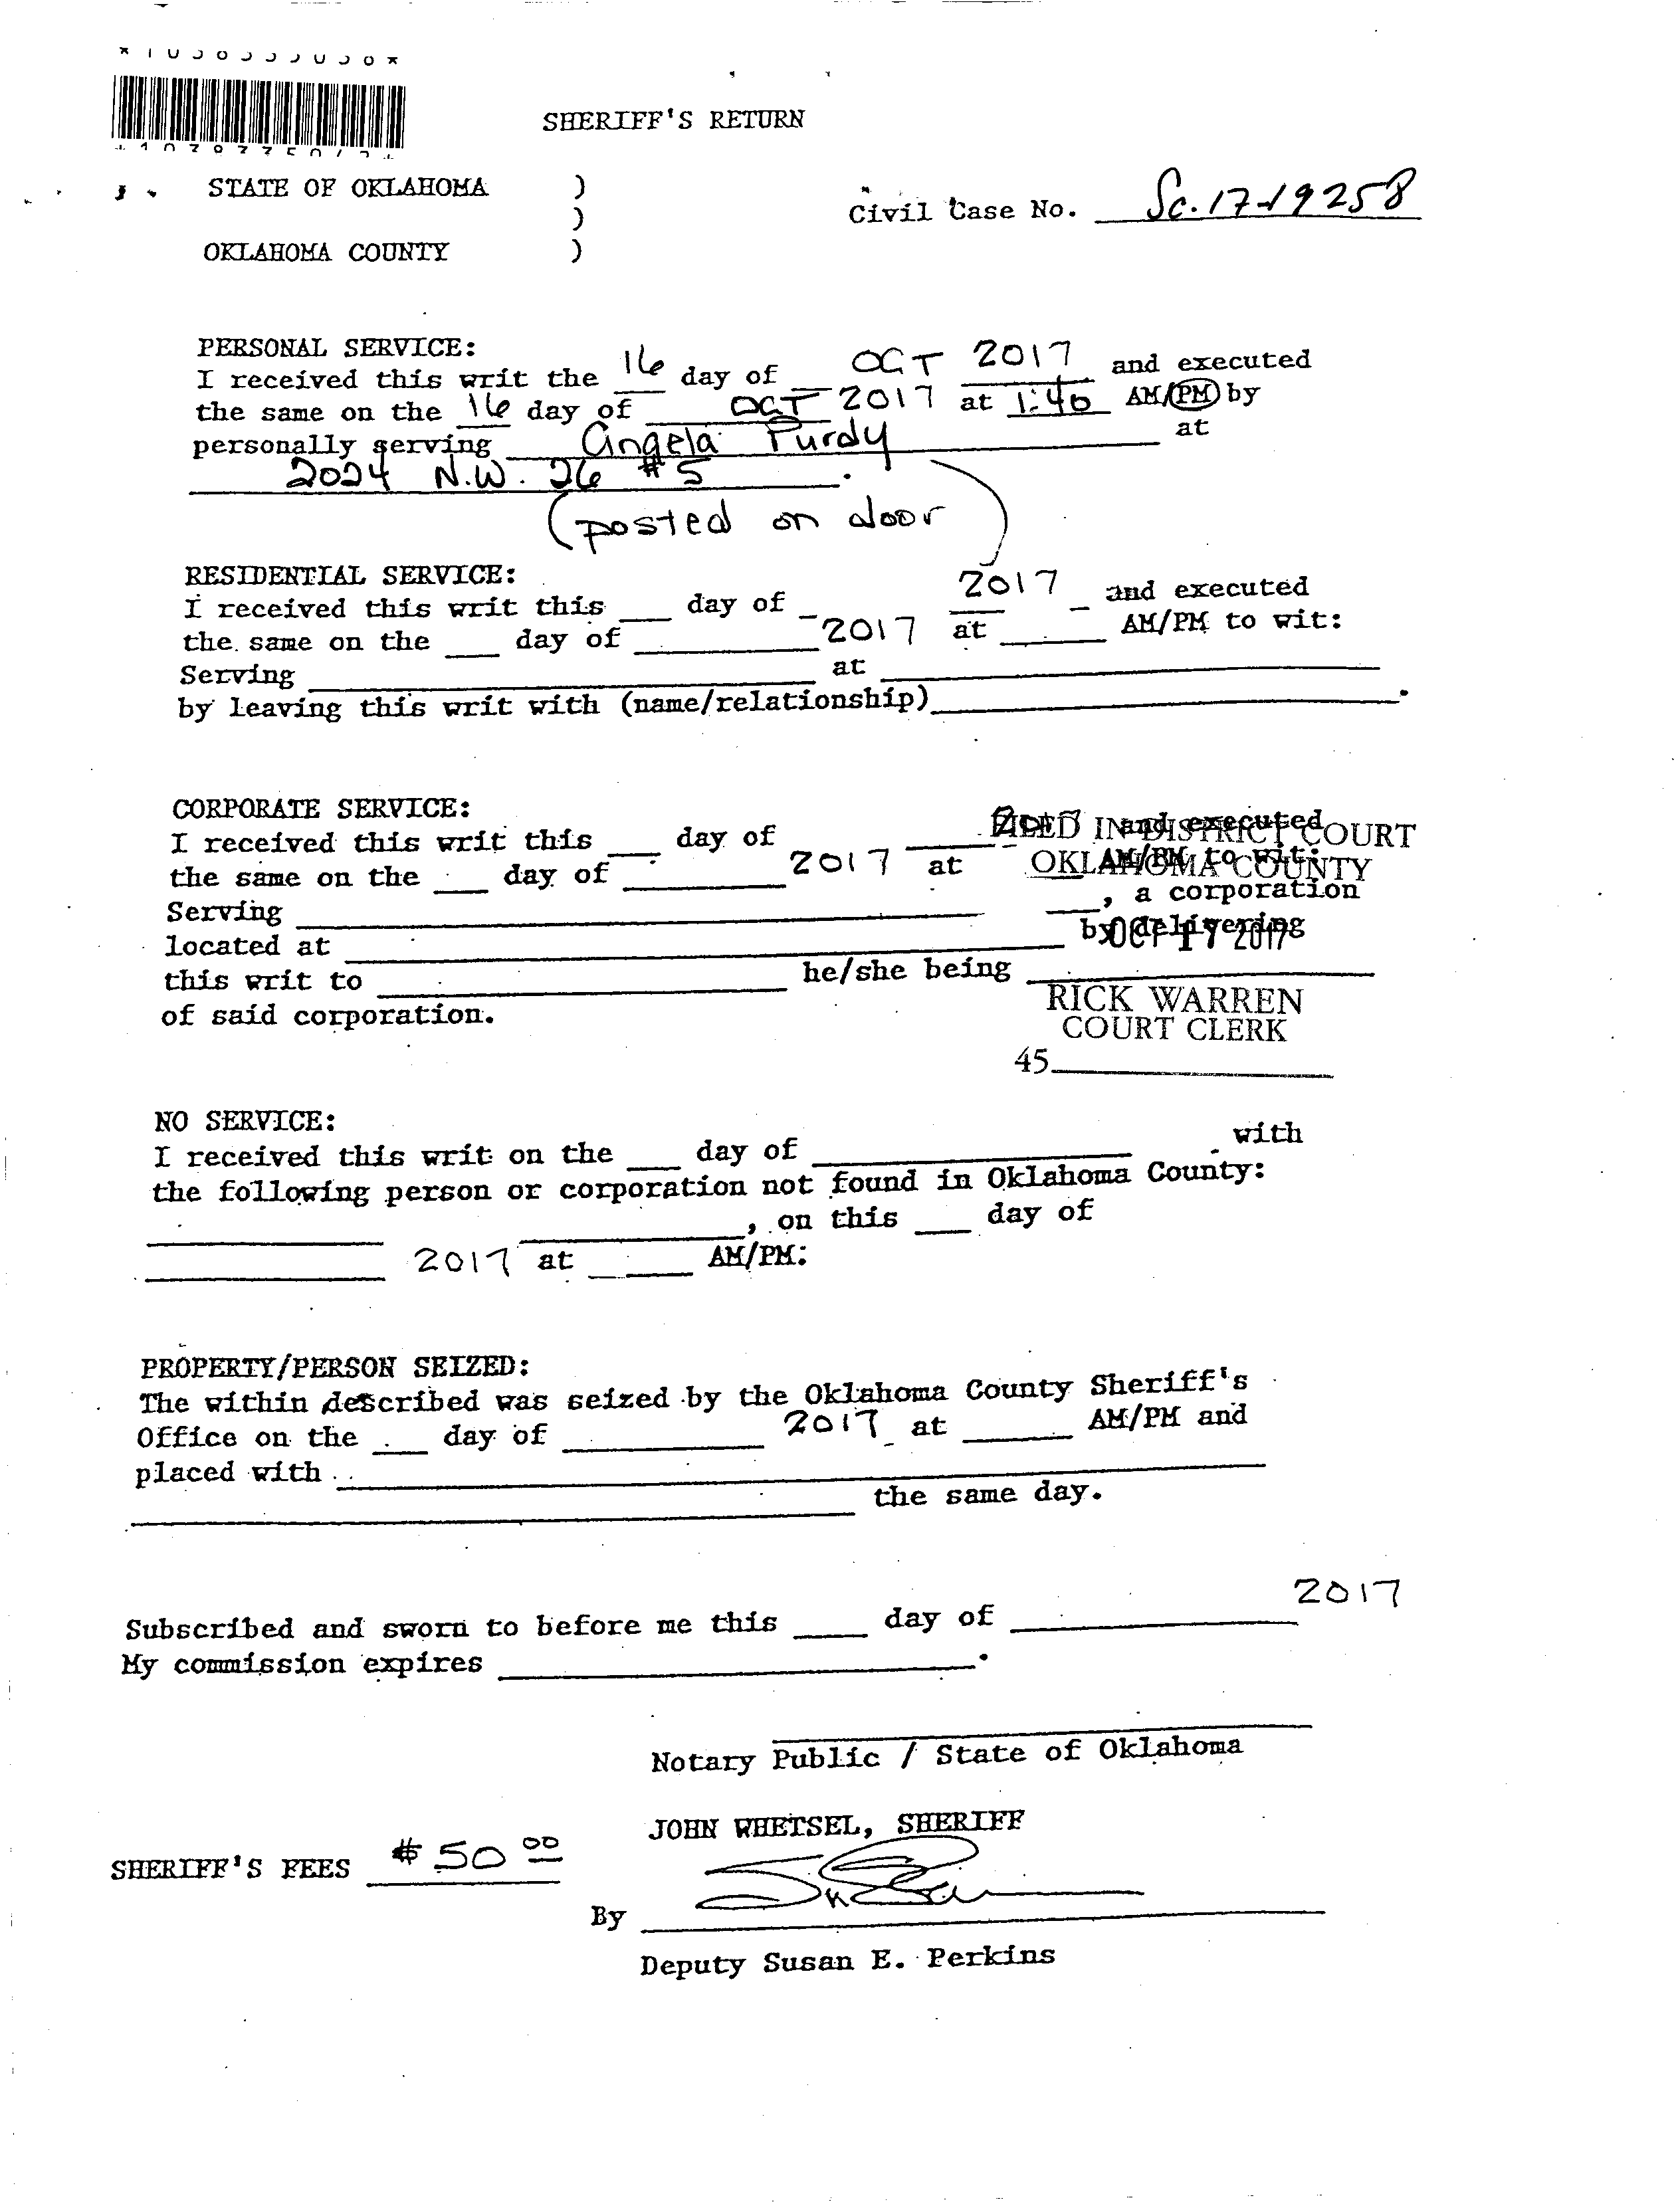 SHERIFF'S RETURN
STATE OF OKLAHOMA )
) Civil Case No. Sc.17-19258
OKLAHOMA COUNTY )
PERSONAL SERVICE:
I received this writ the 16 day of OCT 2017 and executed
the same on the 16 day of OCT 2017 at 1:46 AM/PM by
personally serving Angela Purdy at
2024 N.W. 26 #5.
(posted on door)
RESIDENTIAL SERVICE:
I received this writ this ___ day of _ 2017 and executed
the same on the ___ day of ___ 2017 at ___ AM/PM to wit:
Serving ___ at ___
by leaving this writ with (name/relationship) ___.
CORPORATE SERVICE:
I received this writ this ___ day of ___ 2017 and executed
the same on the ___ day of ___ 2017 at ___ AM/PM to wit:
Serving ___, a corporation
located at ___ by delivering
this writ to ___ he/she being ___
of said corporation.
FILED IN DISTRICT COURT
OKLAHOMA COUNTY
OCT 17 2017
RICK WARREN
COURT CLERK
45 ___
NO SERVICE:
I received this writ on the ___ day of ___ with
the following person or corporation not found in Oklahoma County:
___, on this ___ day of
___ 2017 at ___ AM/PM:
PROPERTY/PERSON SEIZED:
The within described was seized by the Oklahoma County Sheriff's
Office on the ___ day of ___ 2017 at ___ AM/PM and
placed with ___
___ the same day.
Subscribed and sworn to before me this ___ day of ___ 2017
My commission expires ___.
Notary Public / State of Oklahoma
JOHN WHETSEL, SHERIFF
SHERIFF'S FEES $50.00
By ___
Deputy Susan E. Perkins